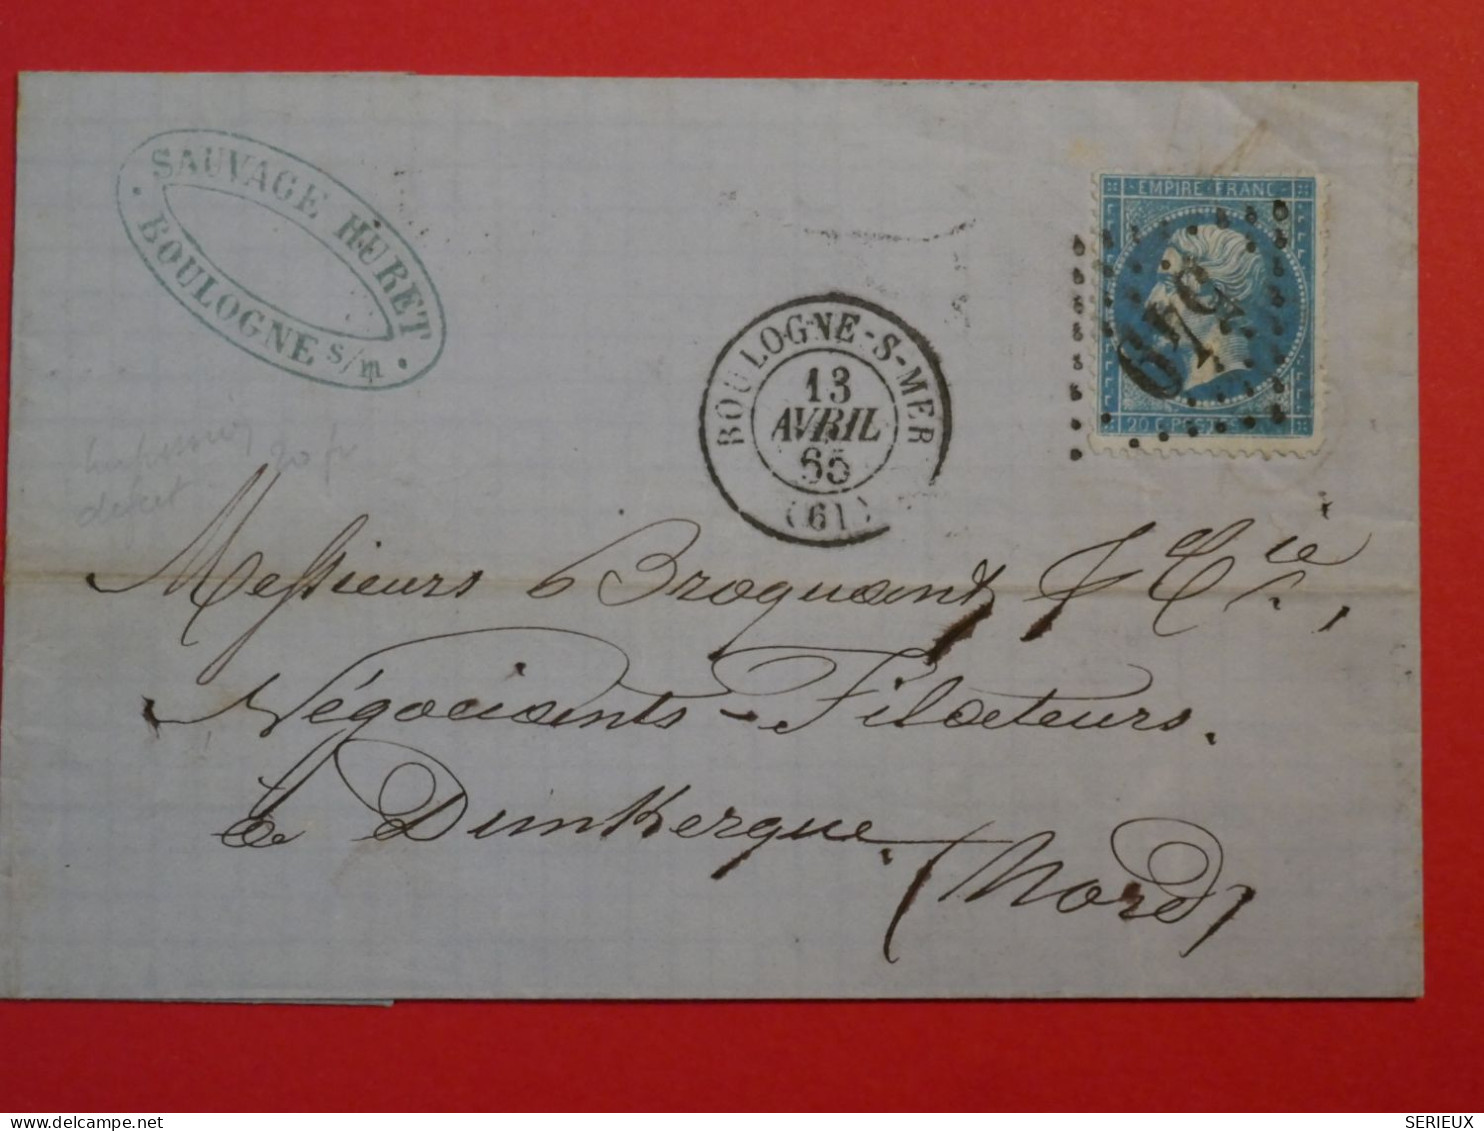 SAUVAGE HURET
BOULOGNE s/m
EMPIRE FRANC
549
20 C
BOULOGNE-S-MER
13
AVRIL
65
(61)
20 fr
Messieurs Broquant & Cie,
Négociants-Filateurs.
à Dunkerque. (Nord)
SERIEUX